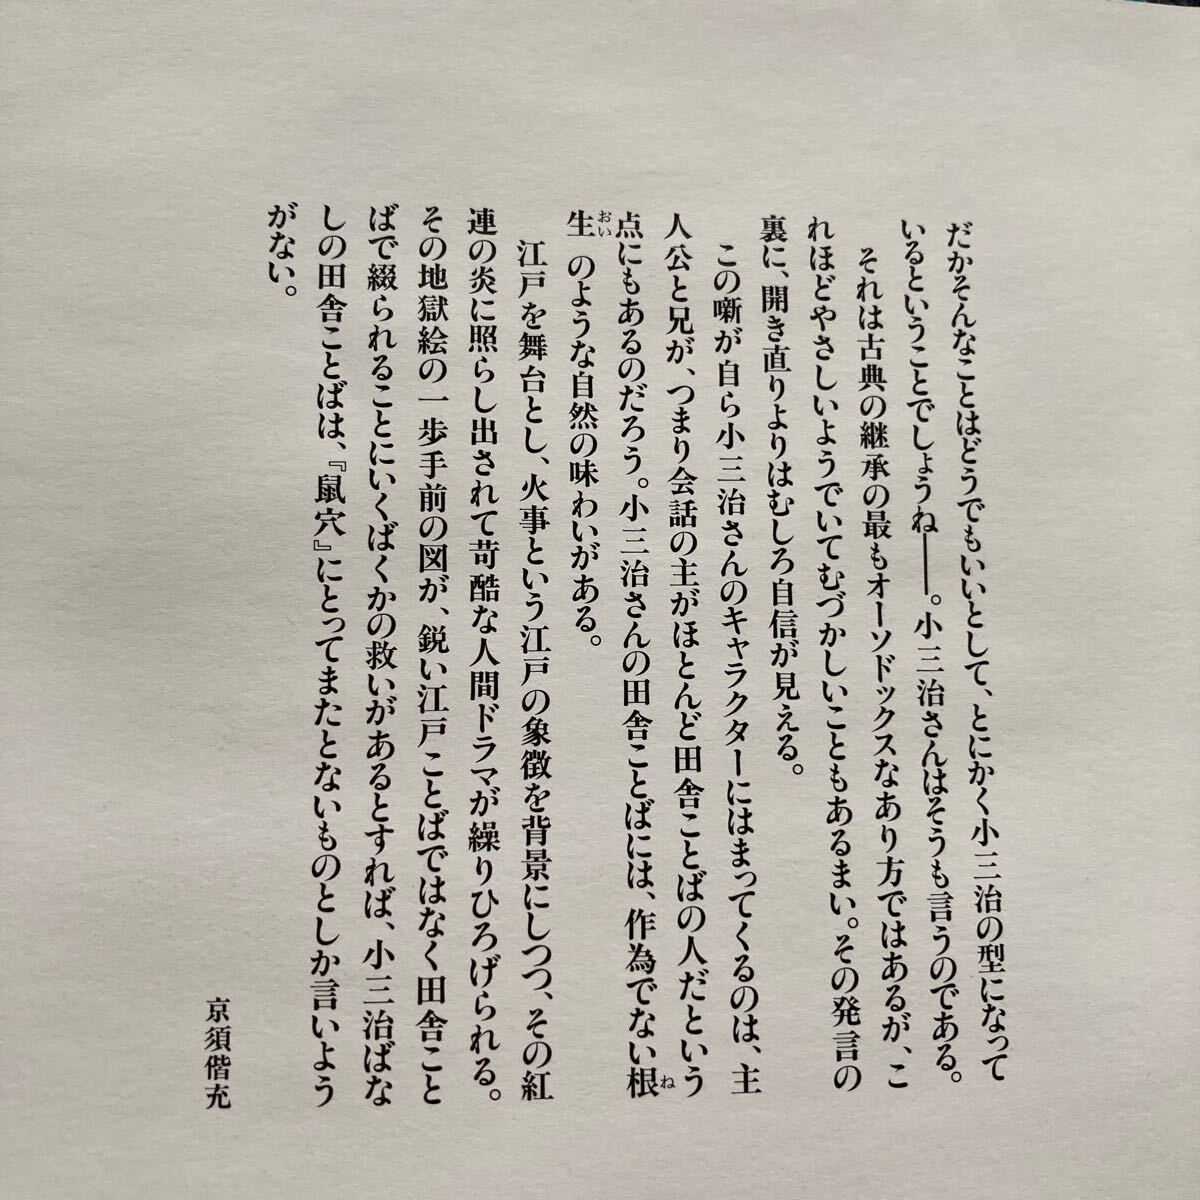 だかそんなことはどうでもいいとして、とにかく小三治の型になって
いるということでしょうね――。小三治さんはそうも言うのである。
それは古典の継承の最もオーソドックスなあり方ではあるが、こ
れほどやさしいようでいてむづかしいこともあるまい。その発言の
裏に、開き直りよりはむしろ自信が見える。
この噺が自ら小三治さんのキャラクターにはまってくるのは、主
人公と兄が、つまり会話の主がほとんど田舎ことばの人だという
点にもあるのだろう。小三治さんの田舎ことばには、作為でない根ね
生おいのような自然の味わいがある。
江戸を舞台とし、火事という江戸の象徴を背景にしつつ、その紅
連の炎に照らし出されて苛酷な人間ドラマが繰りひろげられる。
その地獄絵の一歩手前の図が、鋭い江戸ことばではなく田舎こと
ばで綴られることにいくばくかの救いがあるとすれば、小三治ばな
しの田舎ことばは、『鼠穴』にとってまたとないものとしか言いよう
がない。
京須偕充